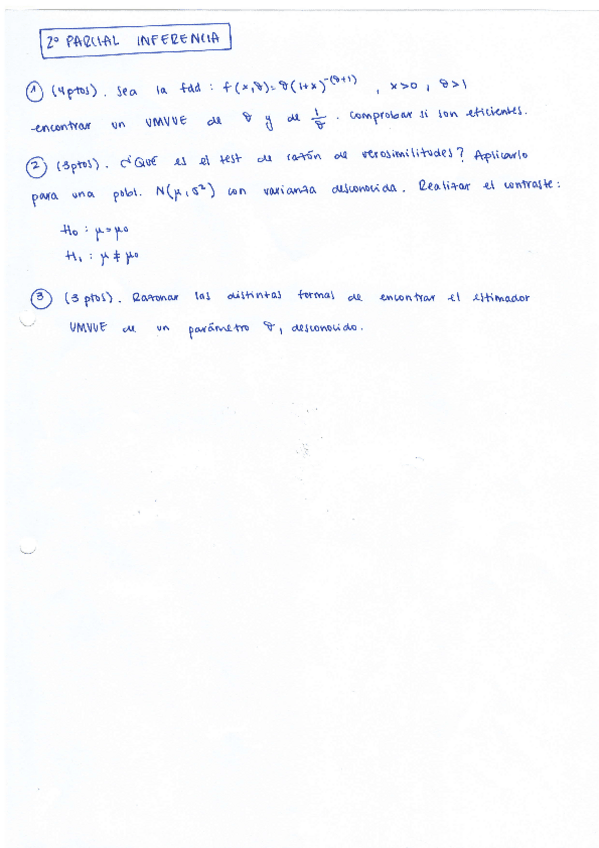 2º PARCIAL INFERENCIA
① (4ptos). Sea la fdd: f(x,θ)=θ(1+x)^-(θ+1) , x>0, θ>1
-encontrar un UMVUE de θ y de 1/θ. Comprobar si son eficientes.
② (3ptos). ¿Qué es el test de razón de verosimilitudes? Aplicarlo
para una pobl. N(μ,σ²) con varianza desconocida. Realizar el contraste:
H₀: μ=μ₀
H₁: μ≠μ₀
③ (3 ptos). Razonar las distintas formas de encontrar el estimador
UMVUE de un parámetro θ, desconocido.